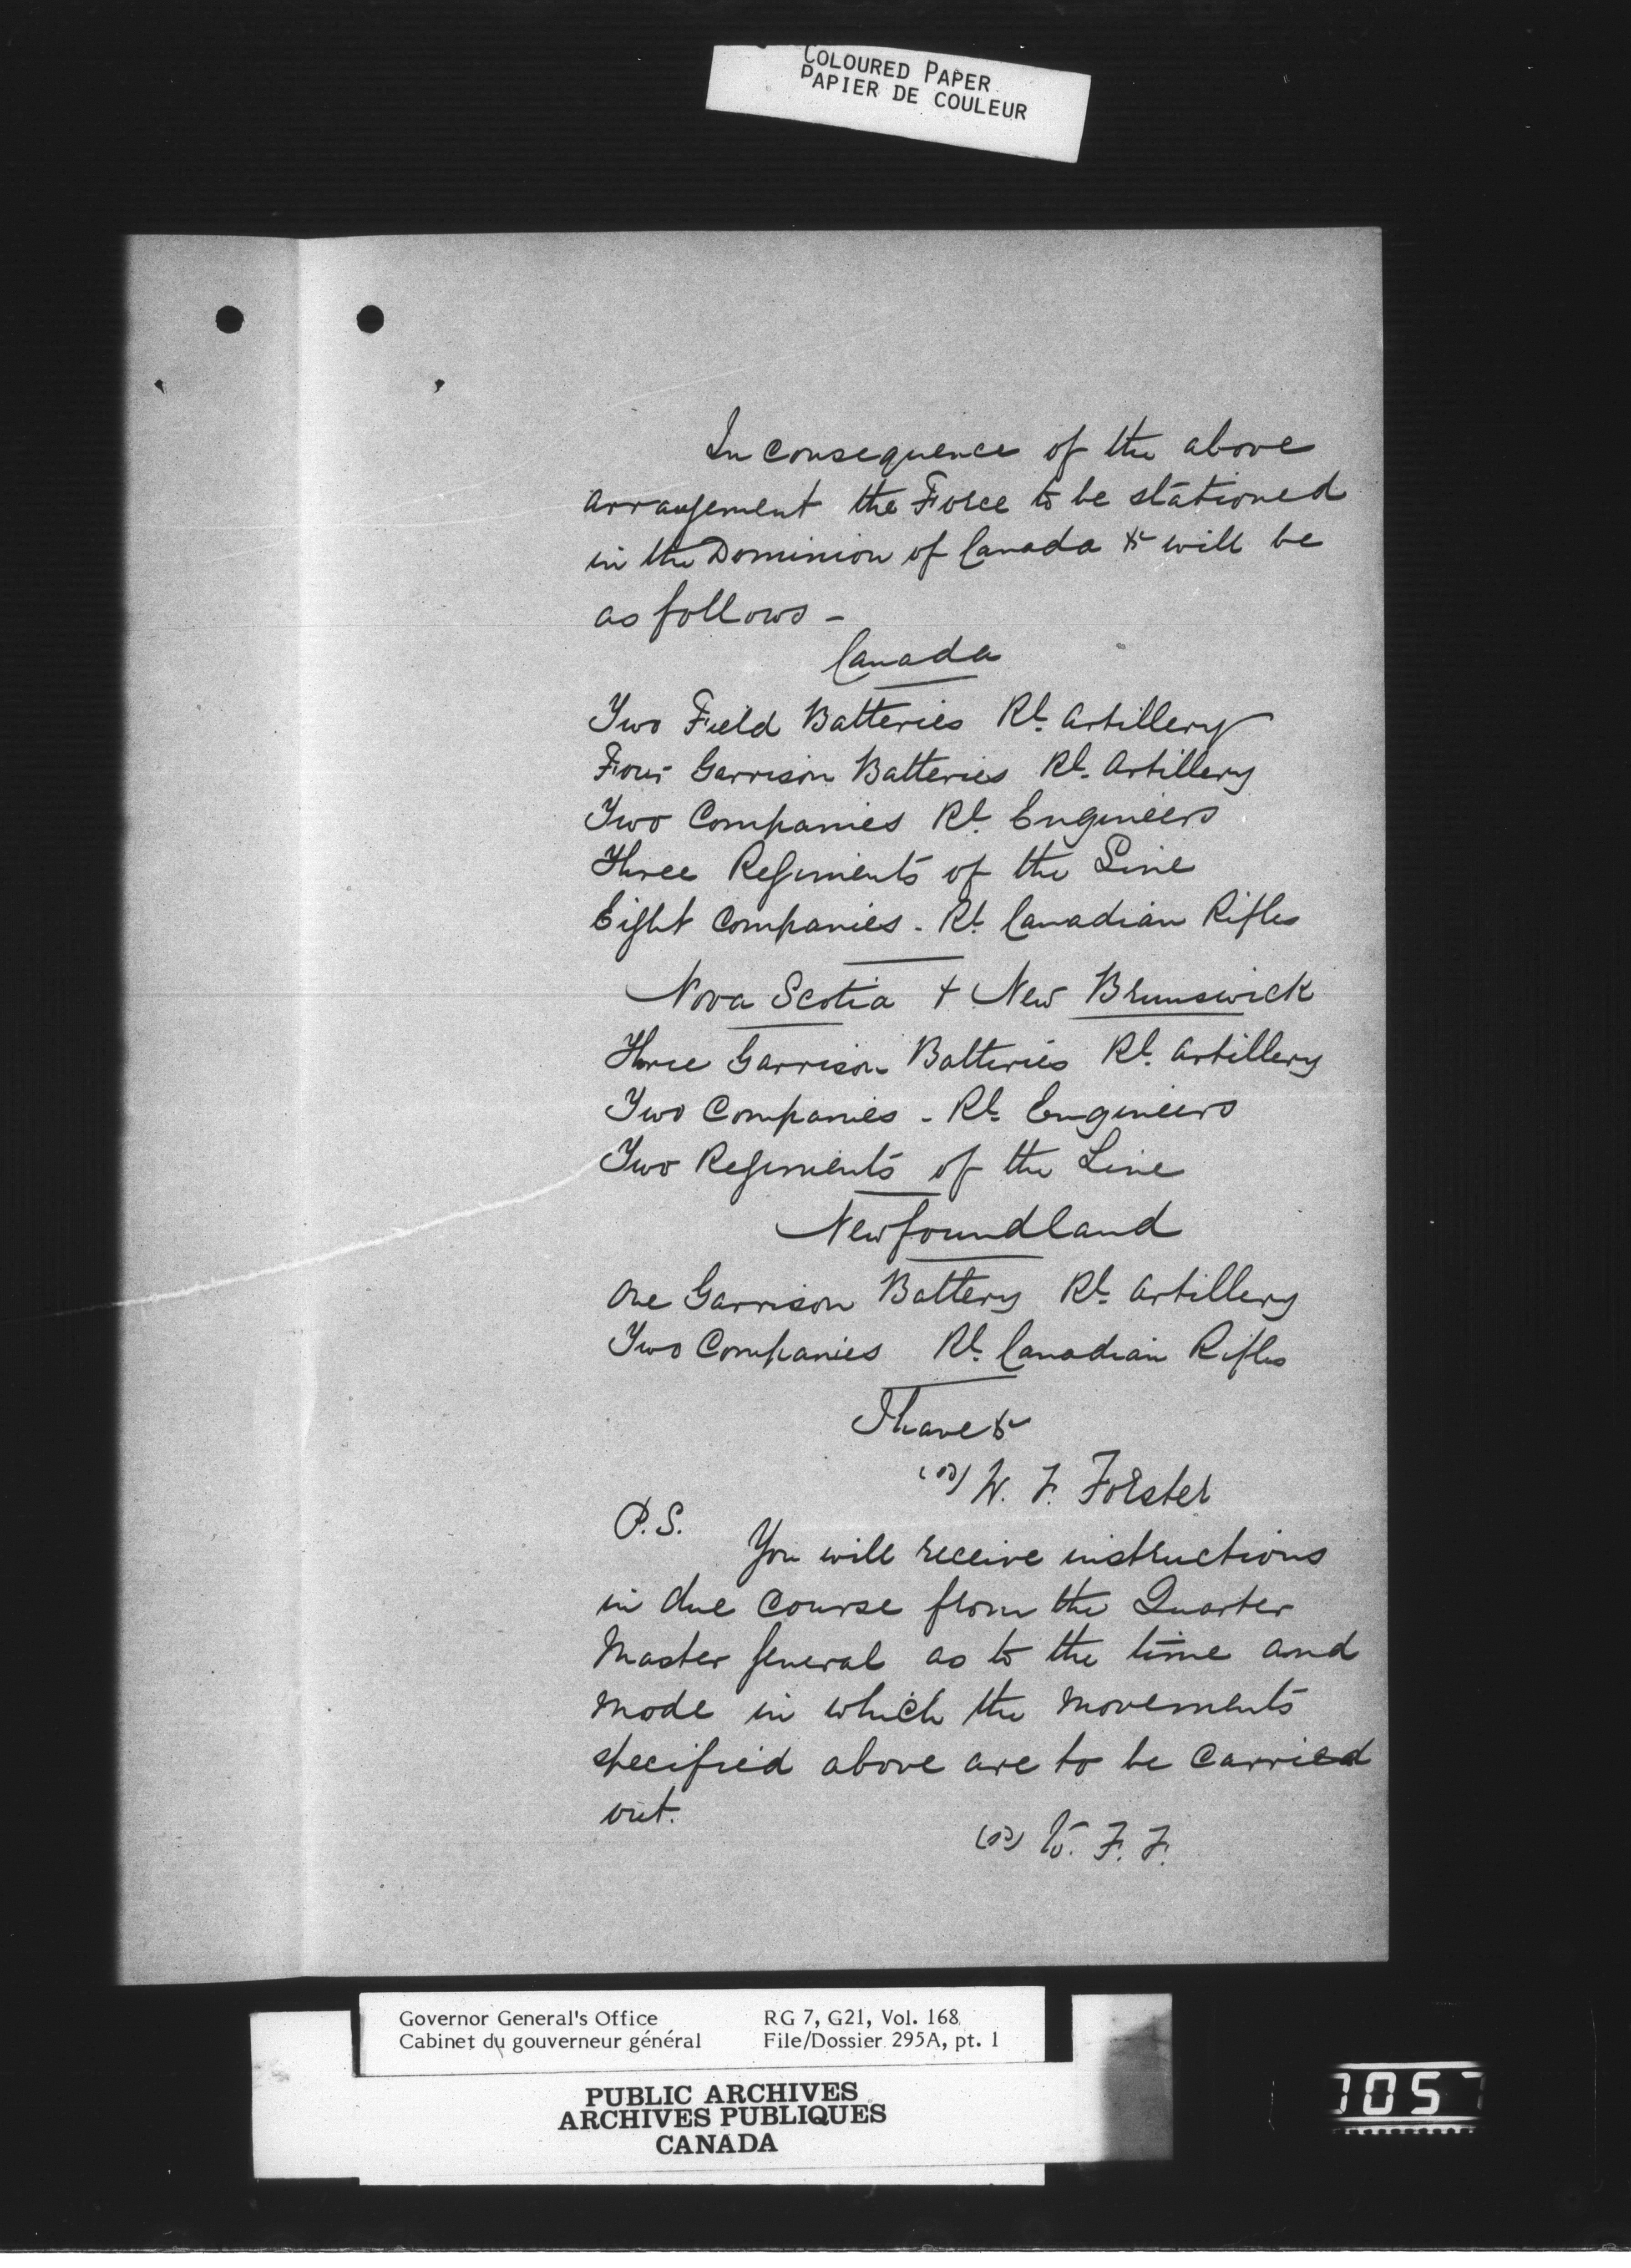 COLOURED PAPER
PAPIER DE COULEUR
In consequence of the above
arrangement the Force to be stationed
in the Dominion of Canada &c will be
as follows -
Canada
Two Field Batteries Rl. Artillery
Four Garrison Batteries Rl. Artillery
Two Companies Rl. Engineers
Three Regiments of the Line
Eight Companies - Rl. Canadian Rifles
Nova Scotia + New Brunswick
Three Garrison Batteries Rl. Artillery
Two Companies - Rl. Engineers
Two Regiments of the Line
Newfoundland
One Garrison Battery Rl. Artillery
Two Companies Rl. Canadian Rifles
I have &c
(sd) W. F. Forster
P.S.
You will receive instructions
in due course from the Quarter
Master General as to the time and
mode in which the movements
specified above are to be carried
out.
(sd) W. F. F.
Governor General's Office RG 7, G21, Vol. 168
Cabinet du gouverneur général File/Dossier 295A, pt. 1
PUBLIC ARCHIVES
ARCHIVES PUBLIQUES
CANADA